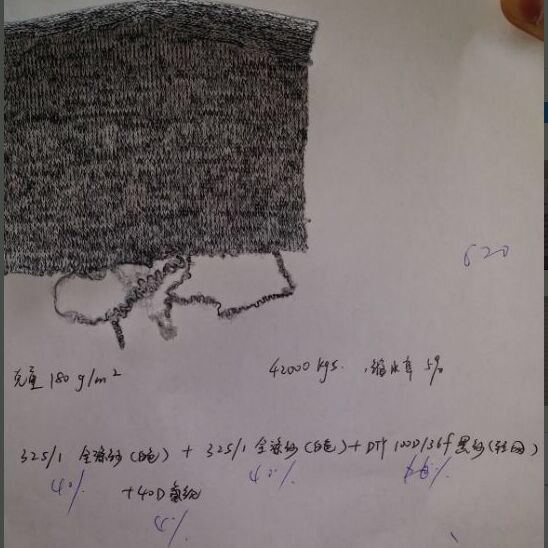 620
克重 180 g/m²
42000 kgs. 缩水率 5%
32S/1 全涤纱(白色) + 32S/1 全涤纱(白色) + DTY 100D/36f 黑纱(轻网)
+40D 氨纶
4%